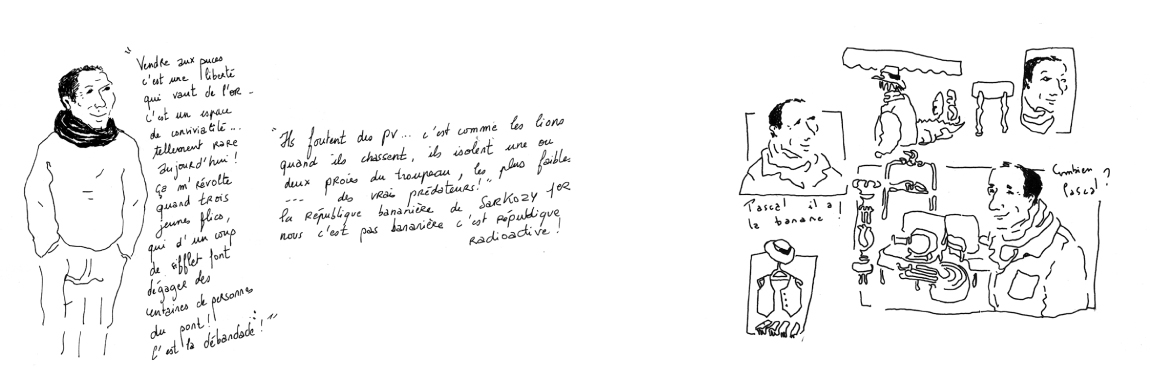 "Vendre aux puces
c'est une liberté
qui vaut de l'or -
c'est un espace
de convivialité...
tellement rare
aujourd'hui !
ça m'révolte
quand trois
jeunes flics,
qui d'un coup
de sifflet font
dégager des
centaines de personnes
du pont !
C'est la débandade !"
"Ils foutent des PV... c'est comme les lions
quand ils chassent, ils isolent une ou
deux proies du troupeau, les plus faibles
--- des vrais prédateurs!"
la République bananière de SARKOZY for
nous c'est pas bananière c'est République
Radioactive !
Pascal il a
la banane !
Combien
Pascal ?